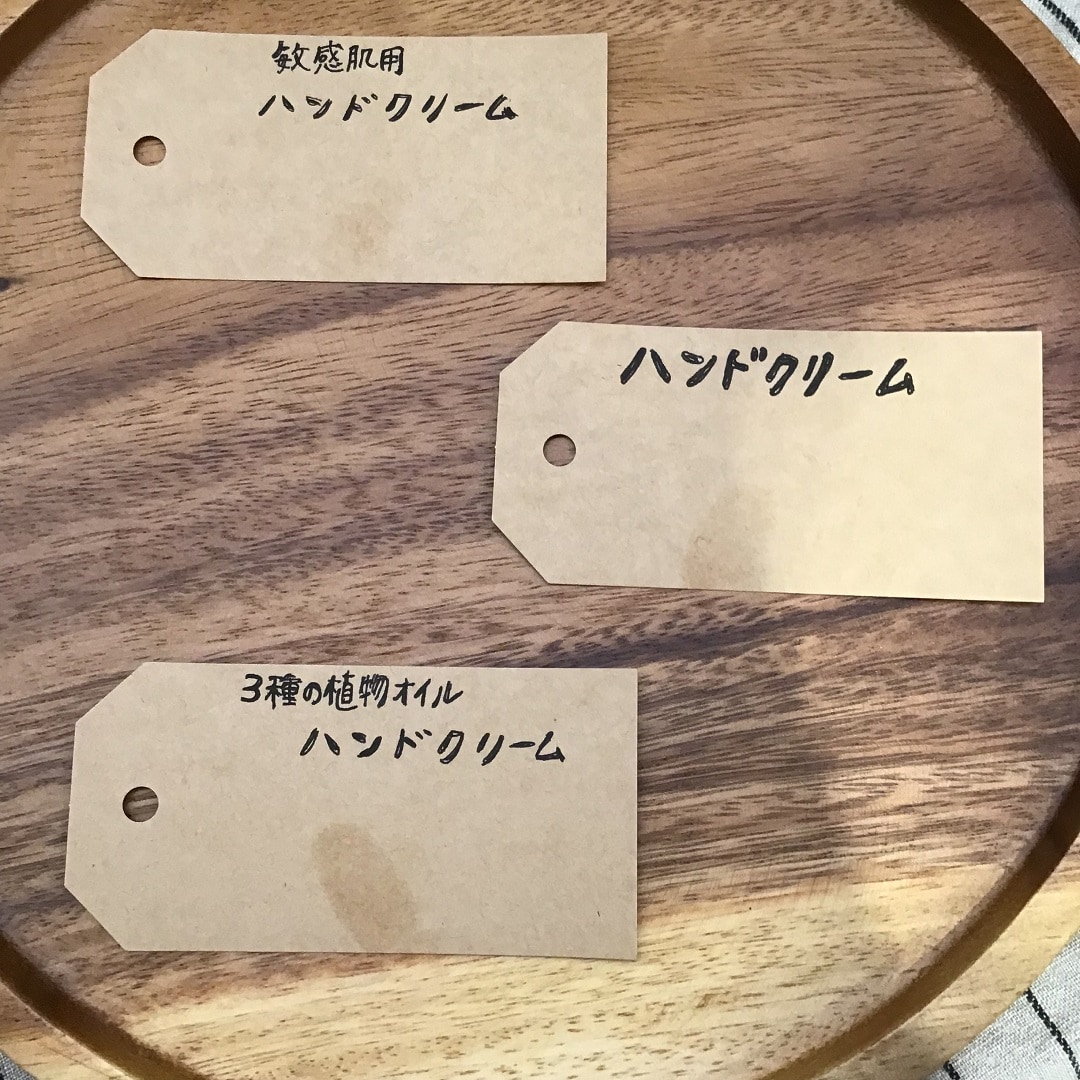 敏感肌用
ハンドクリーム
ハンドクリーム
3種の植物オイル
ハンドクリーム